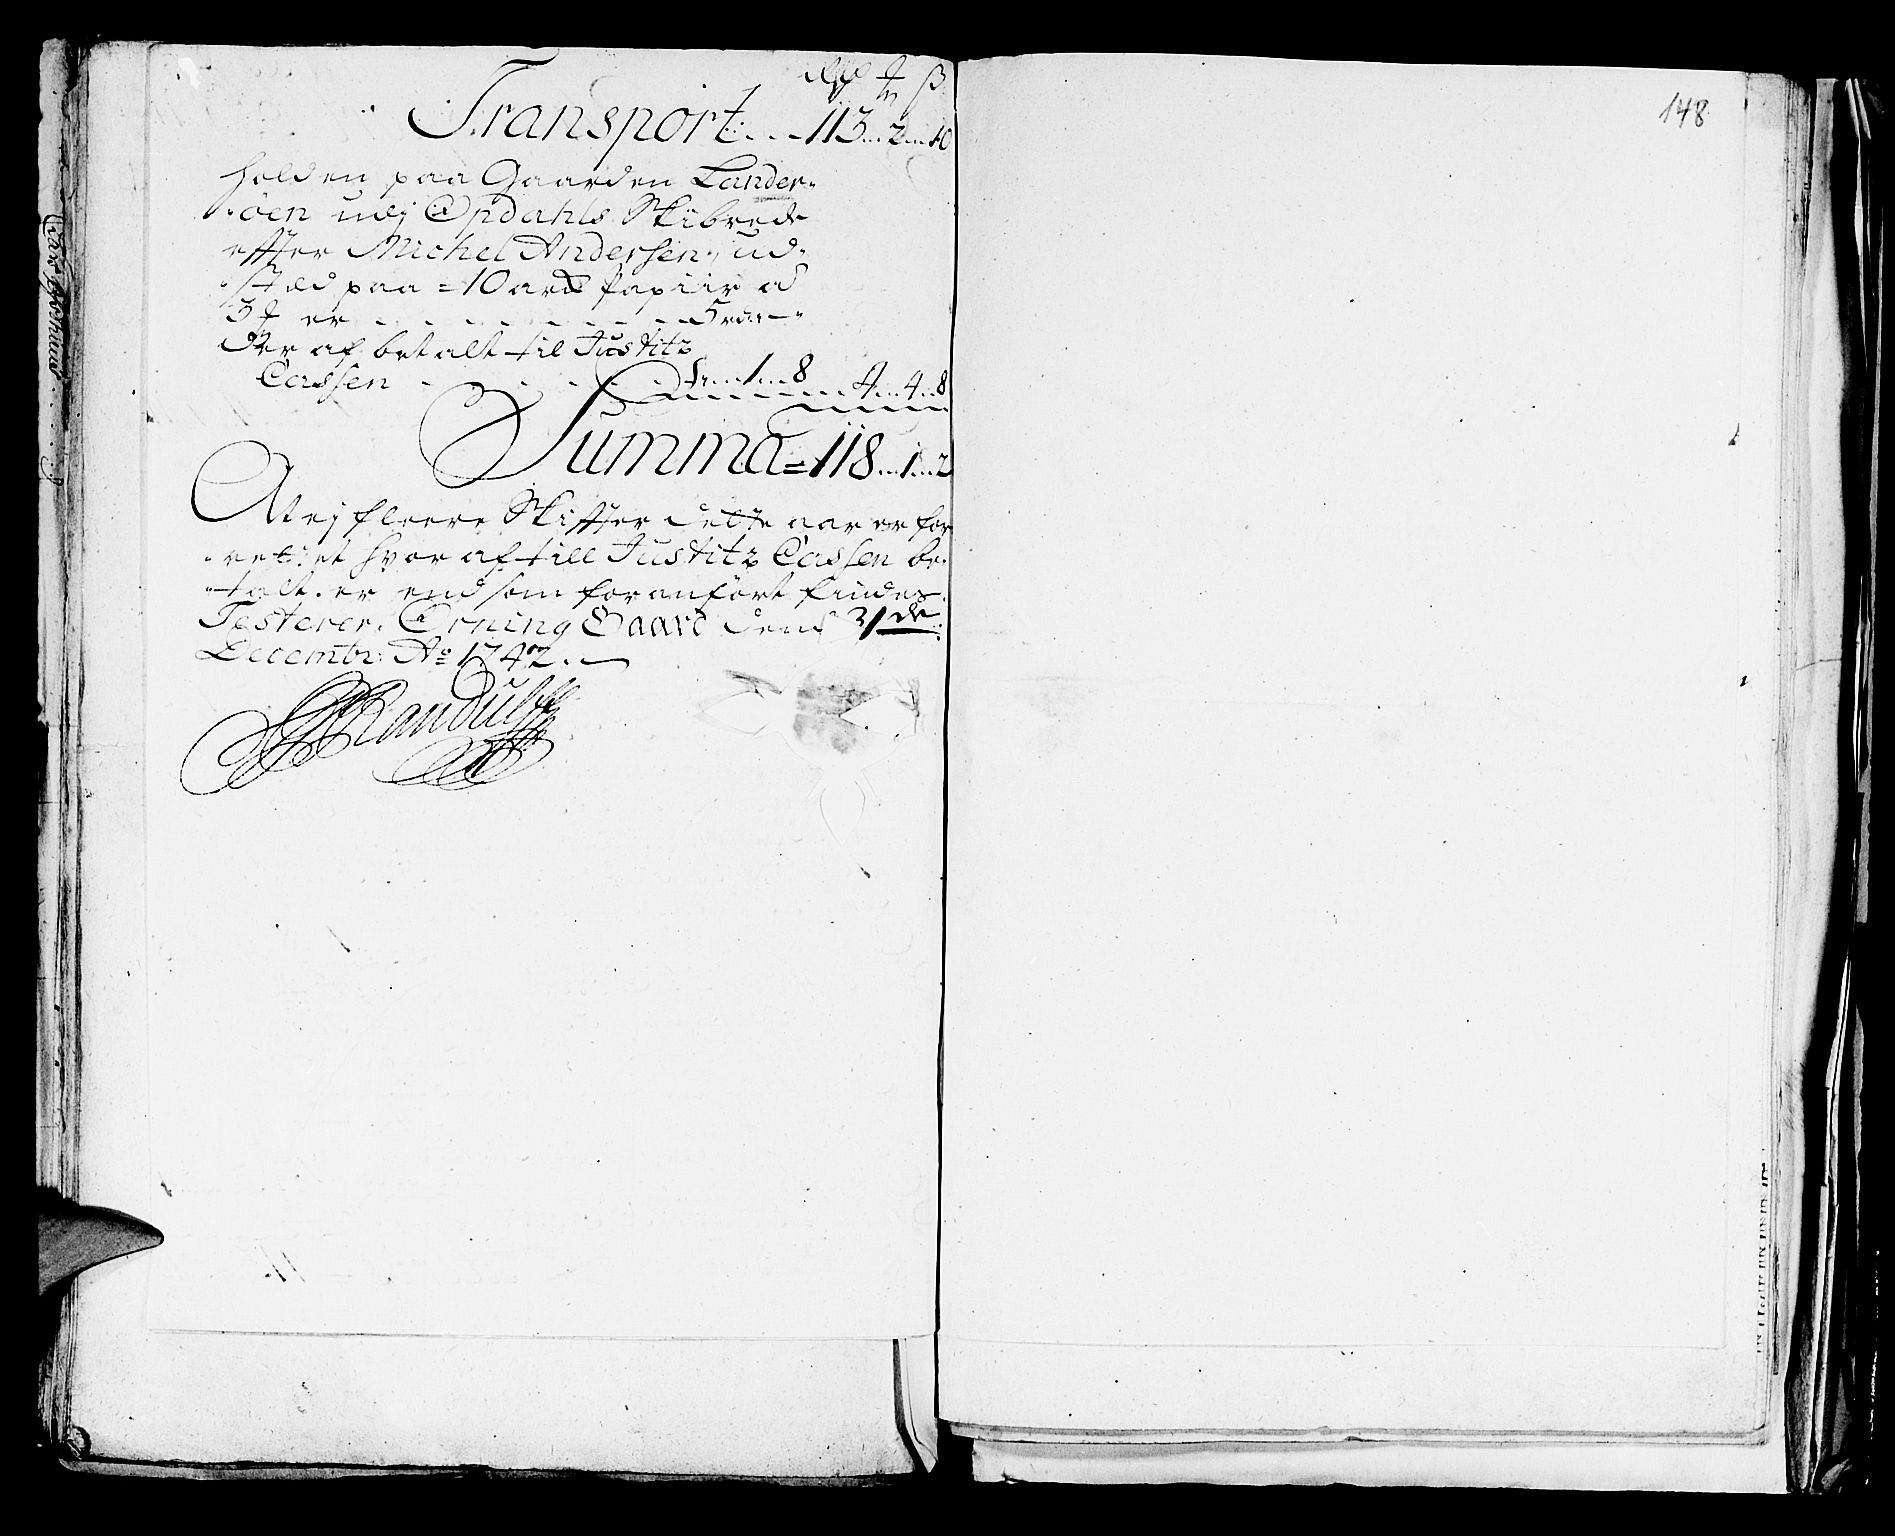 Rdr ꝶ ß
Transport: . . . 113 .. 2 .. 10
holden paa Gaarden Lander-
öen udj Opdahls Skibrede
effter Michel Andersen, ud-
stæd paa = 10 ark Papiir á
3 ꝶ er . . . . . . . 5 rdr —
Der af betalt til Justitz
Cassen . . . . . . . 1 .. 8 4 .. 4 .. 8
Summa = 118 .. 1 .. 2
At ej fleere Skiffter dette aar er for
rettet hvor af till Justitz Cassen be-
talt er end som foranfört findes
Testerer. Örning Gaard dend 31 de:
Decembr: Ao 1742. —
Randulff
148